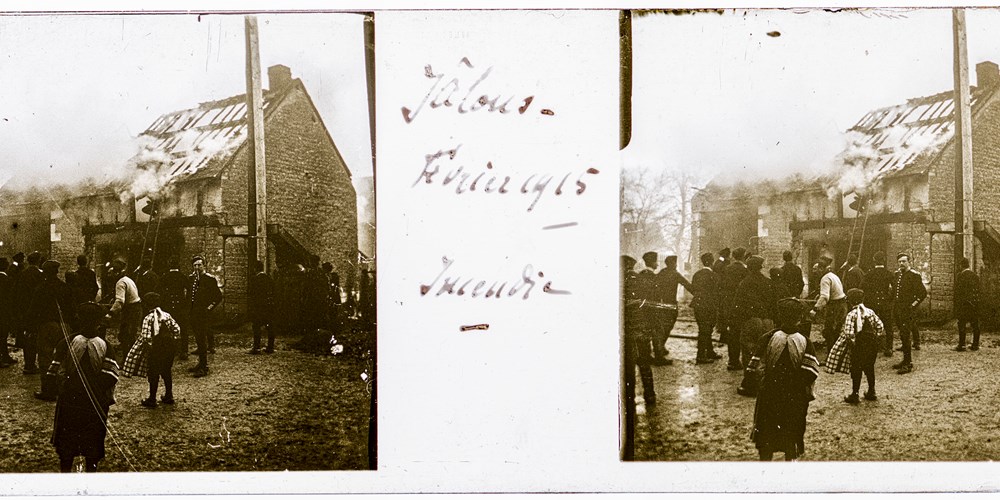 Jâlons -
Février 1915
Incendie